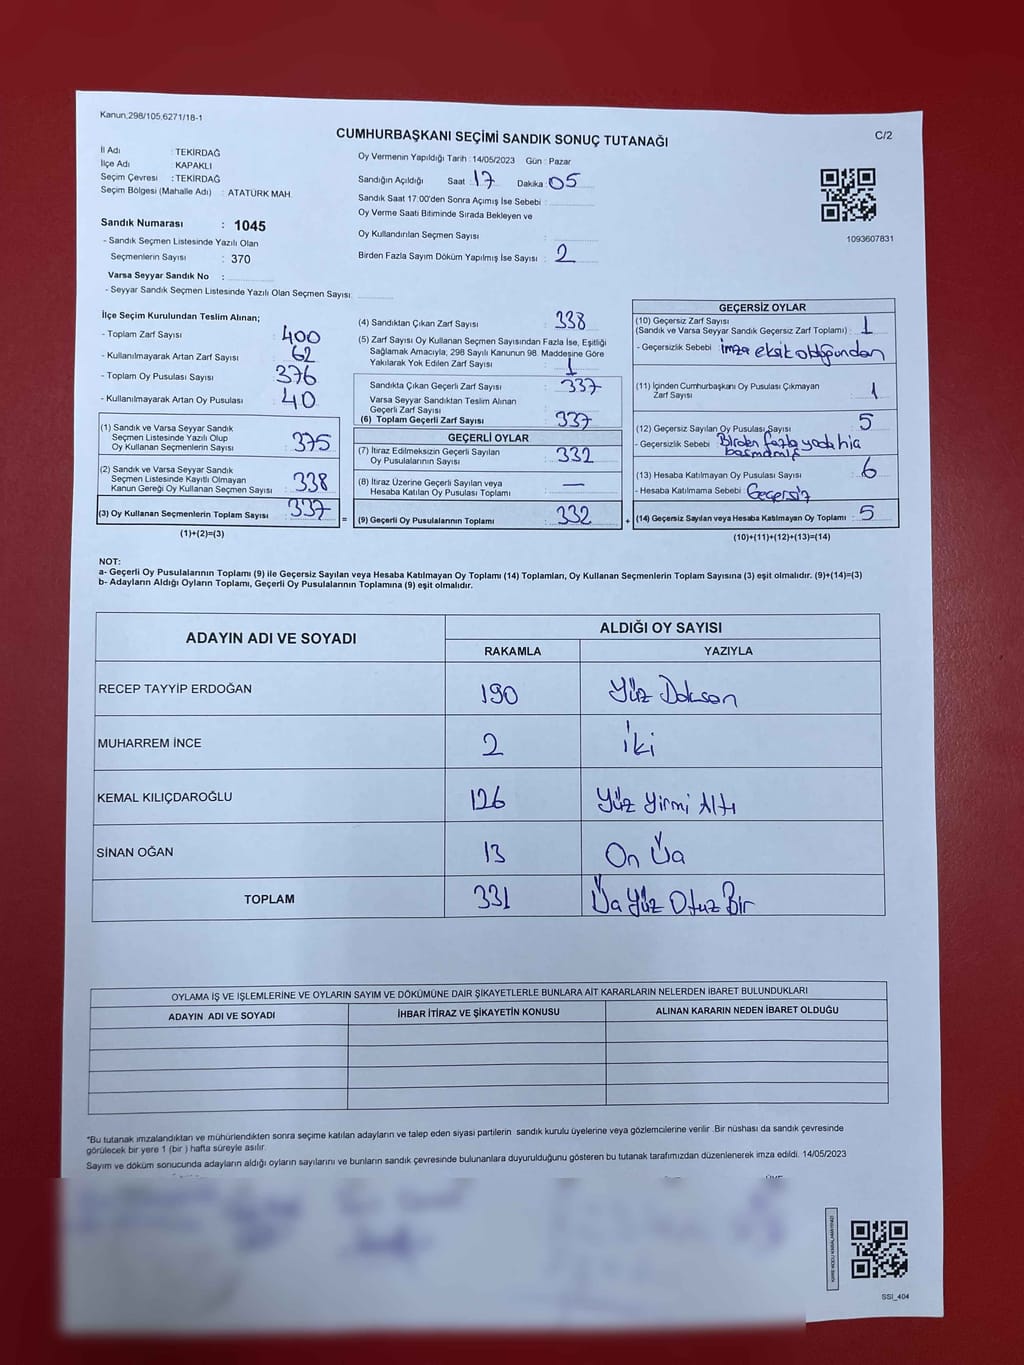 Kanun,298/105,6271/18-1
CUMHURBAŞKANI SEÇİMİ SANDIK SONUÇ TUTANAĞI
C/2
İl Adı : TEKİRDAĞ
İlçe Adı : KAPAKLI
Seçim Çevresi : TEKİRDAĞ
Seçim Bölgesi (Mahalle Adı) : ATATÜRK MAH.
Oy Vermenin Yapıldığı Tarih : 14/05/2023 Gün : Pazar
Sandığın Açıldığı Saat : 17 Dakika : 05
Sandık Saat 17:00'den Sonra Açımış İse Sebebi :
Oy Verme Saati Bitiminde Sırada Bekleyen ve
Oy Kullandırılan Seçmen Sayısı :
Birden Fazla Sayım Döküm Yapılmış İse Sayısı : 2
1093607831
Sandık Numarası : 1045
- Sandık Seçmen Listesinde Yazılı Olan
Seçmenlerin Sayısı : 370
Varsa Seyyar Sandık No :
- Seyyar Sandık Seçmen Listesinde Yazılı Olan Seçmen Sayısı :
İlçe Seçim Kurulundan Teslim Alınan;
- Toplam Zarf Sayısı : 400
- Kullanılmayarak Artan Zarf Sayısı : 62
- Toplam Oy Pusulası Sayısı : 376
- Kullanılmayarak Artan Oy Pusulası : 40
(1) Sandık ve Varsa Seyyar Sandık
Seçmen Listesinde Yazılı Olup
Oy Kullanan Seçmenlerin Sayısı : 375
(2) Sandık ve Varsa Seyyar Sandık
Seçmen Listesinde Kayıtlı Olmayan
Kanun Gereği Oy Kullanan Seçmen Sayısı : 338
(3) Oy Kullanan Seçmenlerin Toplam Sayısı : 337
(1)+(2)=(3)
(4) Sandıktan Çıkan Zarf Sayısı : 338
(5) Zarf Sayısı Oy Kullanan Seçmen Sayısından Fazla İse, Eşitliği
Sağlamak Amacıyla, 298 Sayılı Kanunun 98. Maddesine Göre
Yakılarak Yok Edilen Zarf Sayısı : 1
Sandıkta Çıkan Geçerli Zarf Sayısı : 337
Varsa Seyyar Sandıktan Teslim Alınan
Geçerli Zarf Sayısı :
(6) Toplam Geçerli Zarf Sayısı : 337
GEÇERLİ OYLAR
(7) İtiraz Edilmeksizin Geçerli Sayılan
Oy Pusulalarının Sayısı : 332
(8) İtiraz Üzerine Geçerli Sayılan veya
Hesaba Katılan Oy Pusulası Toplamı : —
= (9) Geçerli Oy Pusulalarının Toplamı : 332
GEÇERSİZ OYLAR
(10) Geçersiz Zarf Sayısı
(Sandık ve Varsa Seyyar Sandık Geçersiz Zarf Toplamı) : 1
- Geçersizlik Sebebi : imza eksik olduğundan
(11) İçinden Cumhurbaşkanı Oy Pusulası Çıkmayan
Zarf Sayısı : 1
(12) Geçersiz Sayılan Oy Pusulası Sayısı : 5
- Geçersizlik Sebebi : Birden fazla yada hiç
basmamış
(13) Hesaba Katılmayan Oy Pusulası Sayısı : 6
- Hesaba Katılmama Sebebi : Geçersiz
+ (14) Geçersiz Sayılan veya Hesaba Katılmayan Oy Toplamı : 5
(10)+(11)+(12)+(13)=(14)
NOT:
a- Geçerli Oy Pusulalarının Toplamı (9) ile Geçersiz Sayılan veya Hesaba Katılmayan Oy Toplamı (14) Toplamları, Oy Kullanan Seçmenlerin Toplam Sayısına (3) eşit olmalıdır. (9)+(14)=(3)
b- Adayların Aldığı Oyların Toplamı, Geçerli Oy Pusulalarının Toplamına (9) eşit olmalıdır.
ADAYIN ADI VE SOYADI
ALDIĞI OY SAYISI
RAKAMLA YAZIYLA
RECEP TAYYİP ERDOĞAN 190 Yüz Doksan
MUHARREM İNCE 2 İki
KEMAL KILIÇDAROĞLU 126 Yüz Yirmi Altı
SİNAN OĞAN 13 On Üç
TOPLAM 331 Üç Yüz Otuz Bir
OYLAMA İŞ VE İŞLEMLERİNE VE OYLARIN SAYIM VE DÖKÜMÜNE DAİR ŞİKAYETLERLE BUNLARA AİT KARARLARIN NELERDEN İBARET BULUNDUKLARI
ADAYIN ADI VE SOYADI İHBAR İTİRAZ VE ŞİKAYETİN KONUSU ALINAN KARARIN NEDEN İBARET OLDUĞU
*Bu tutanak imzalandıktan ve mühürlendikten sonra seçime katılan adayların ve talep eden siyasi partilerin sandık kurulu üyelerine veya gözlemcilerine verilir. Bir nüshası da sandık çevresinde
görülecek bir yere 1 (bir ) hafta süreyle asılır.
Sayım ve döküm sonucunda adayların aldığı oyların sayılarını ve bunların sandık çevresinde bulunanlara duyurulduğunu gösteren bu tutanak tarafımızdan düzenlenerek imza edildi. 14/05/2023
SSI_404